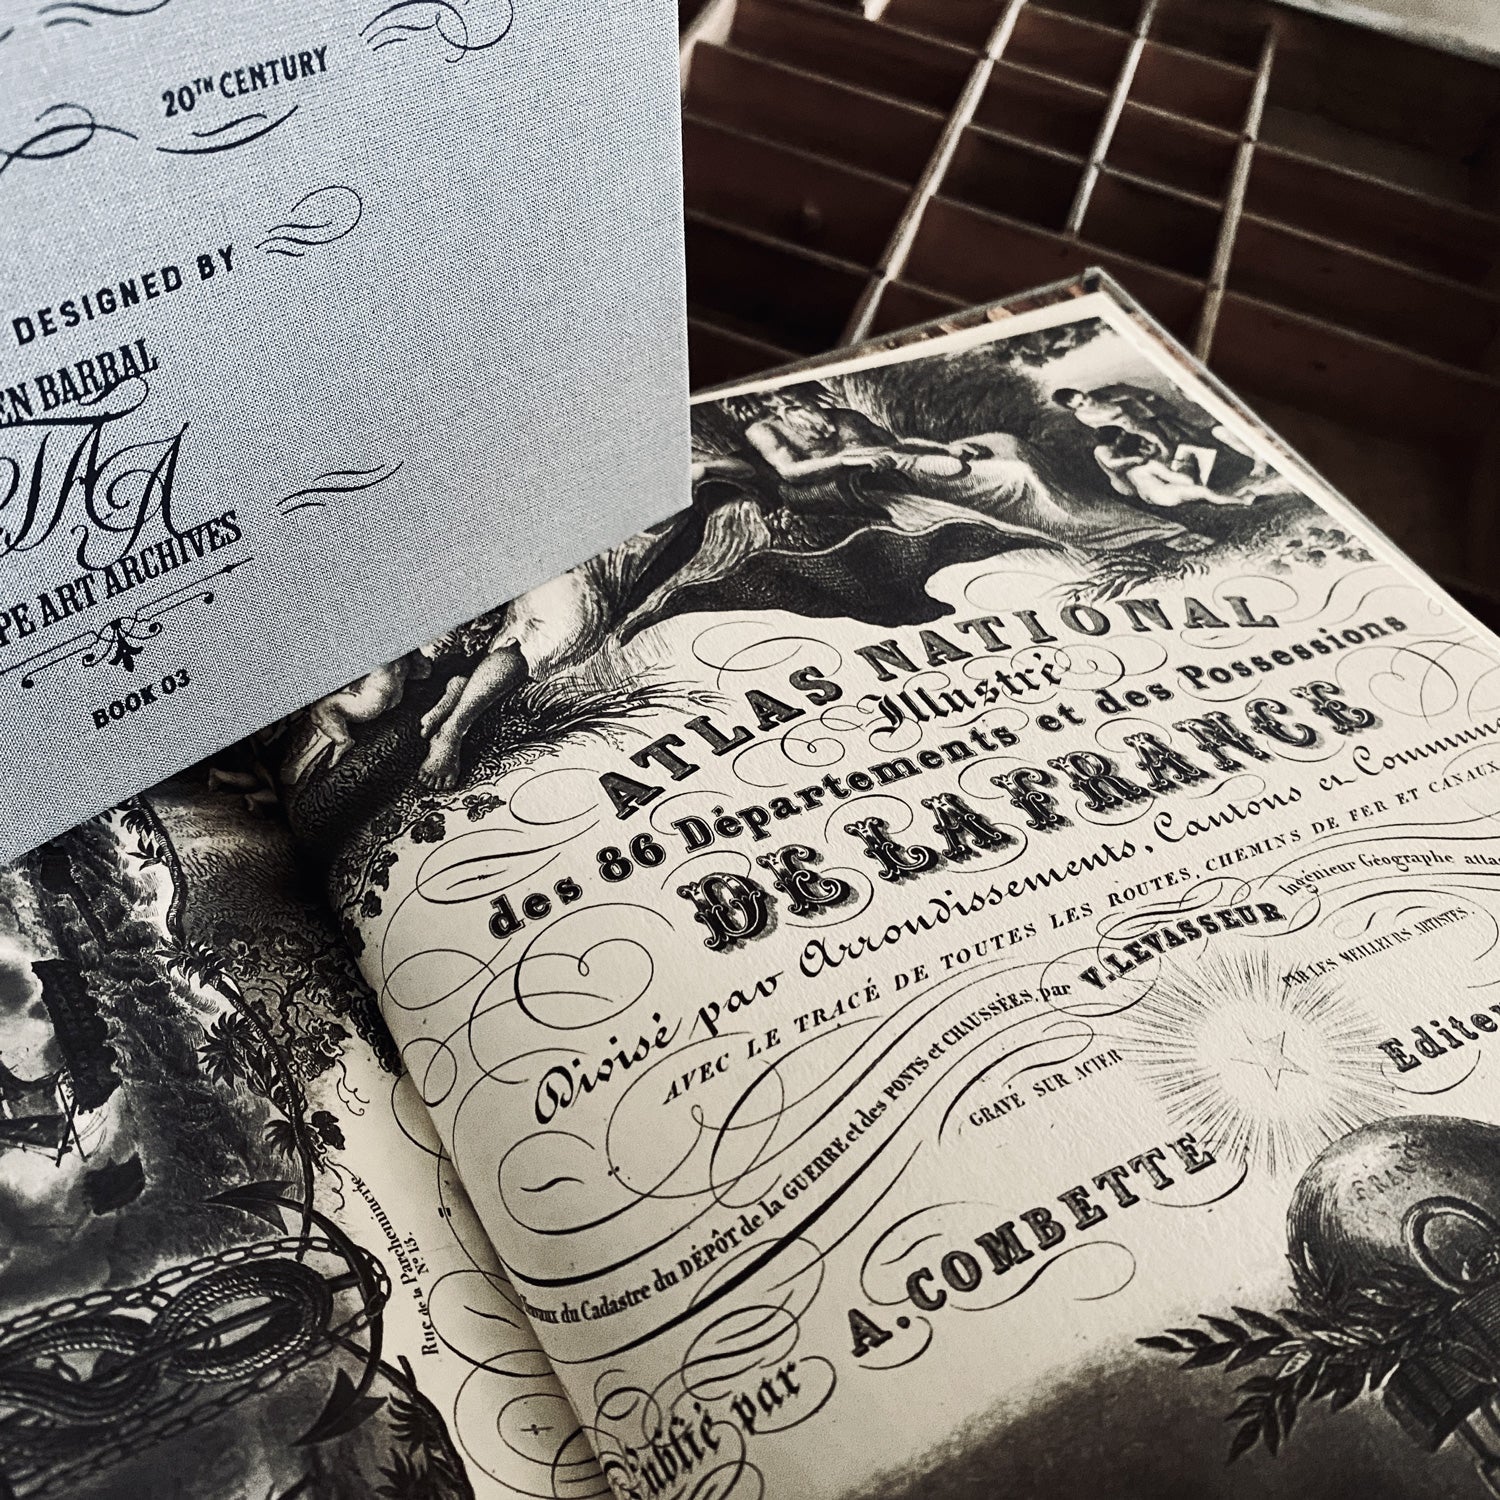 20TH CENTURY
DESIGNED BY
BARRAL
ART ARCHIVES
BOOK 03
ATLAS NATIONAL
Illustré
des 86 Départements et des Possessions
DE LA FRANCE
Divisé par Arrondissements, Cantons et
AVEC LE TRACÉ DE TOUTES LES ROUTES, CHEMINS DE FER ET CANAUX
par V. LEVASSEUR Ingénieur Géographe
du Cadastre du DÉPÔT de la GUERRE et des PONTS et CHAUSSÉES,
GRAVÉ SUR ACIER PAR LES MEILLEURS ARTISTES.
Publié par A. COMBETTE
Rue de la Parcheminerie
No. 15.